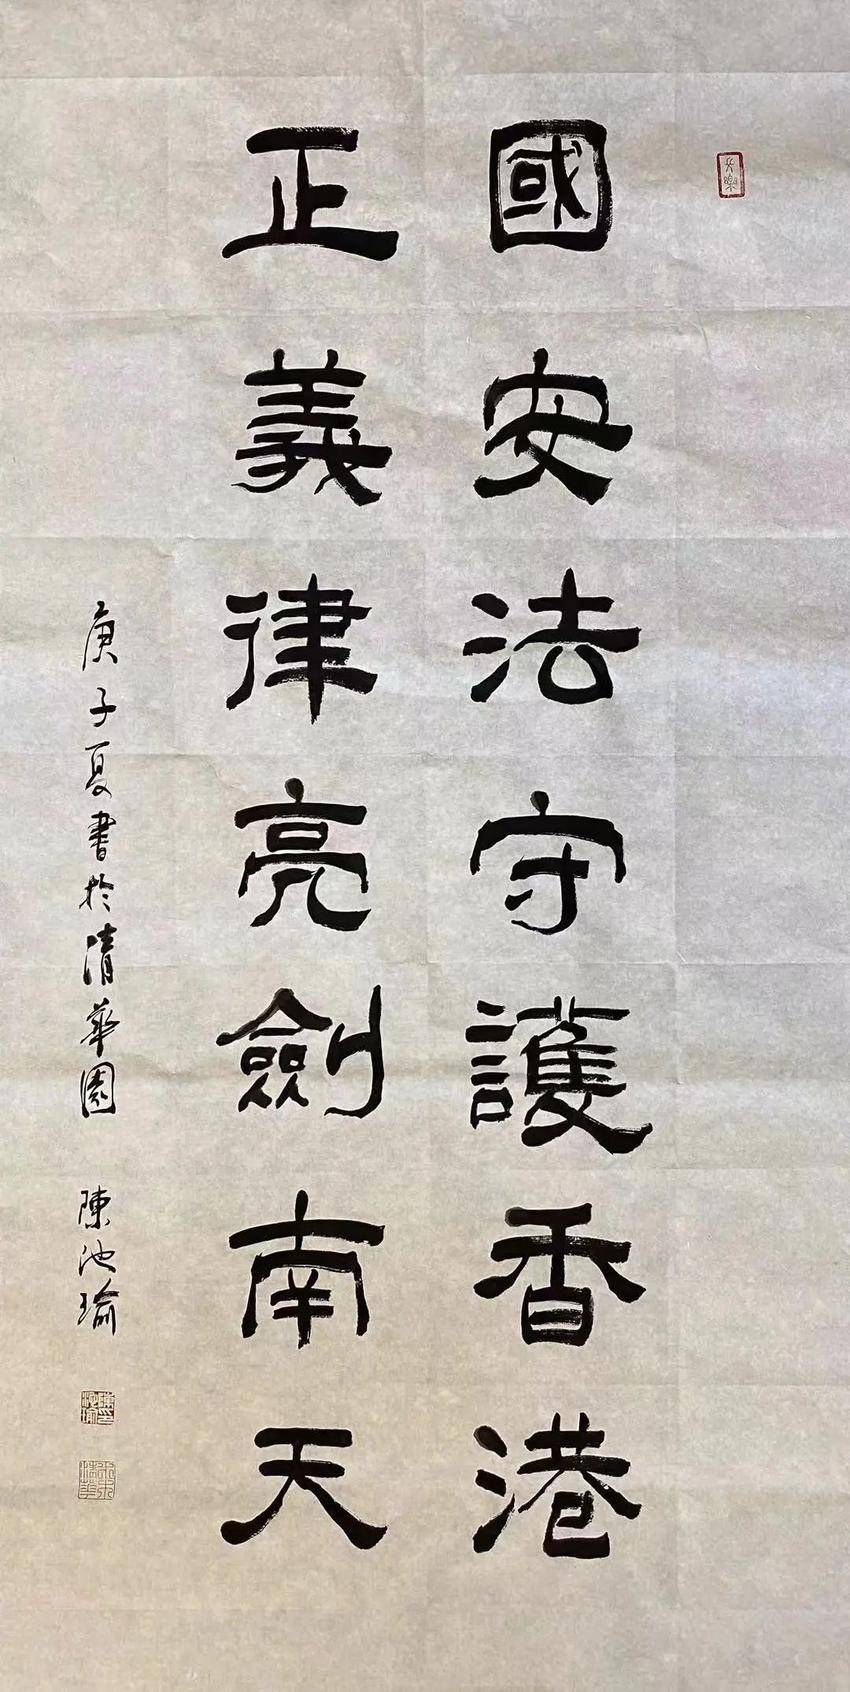 國安法守護香港
正義律亮劍南天
庚子夏書於清華園 陳池瑜